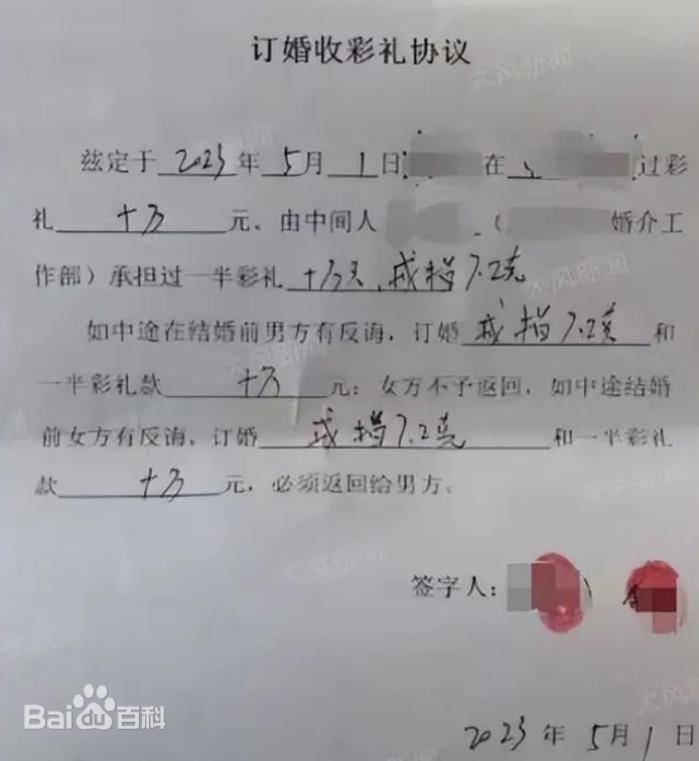 订婚收彩礼协议
兹定于 2023 年 5 月 1 日 在 过彩
礼 十万 元，由中间人 （ 婚介工
作部）承担过一半彩礼 十万元，戒指7.2克
如中途在结婚前男方有反诲，订婚 戒指7.2克 和
一半彩礼款 十万 元；女方不予返回，如中途结婚
前女方有反诲，订婚 戒指7.2克 和一半彩礼
款 十万 元，必须返回给男方。
签字人：
2023 年 5月1日
Bai百科
大风新闻